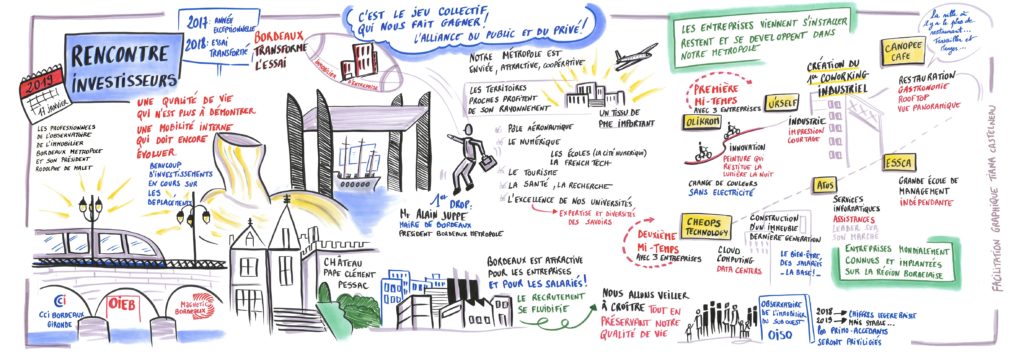 RENCONTRE
INVESTISSEURS
2019
17 JANVIER
2017: ANNÉE
EXCEPTIONNELLE
2018: ESSAI
TRANSFORMÉ
BORDEAUX
TRANSFORME
L'ESSAI
IMMOBILIER
D'ENTREPRISE
C'EST LE JEU COLLECTIF,
QUI NOUS FAIT GAGNER!
L'ALLIANCE DU PUBLIC ET DU PRIVÉ!
LES PROFESSIONNELS
DE L'OBSERVATOIRE
DE L'IMMOBILIER
BORDEAUX METROPOLE
ET SON PRÉSIDENT
RODOLPHE DE MALET
UNE QUALITÉ DE VIE
QUI N'EST PLUS À DÉMONTRER.
UNE MOBILITÉ INTERNE
QUI DOIT ENCORE
ÉVOLUER.
BEAUCOUP
D'INVESTISSEMENTS
EN COURS SUR
LES
DEPLACEMENTS
CCI
CCI BORDEAUX
GIRONDE
OIEB
MAGNETIC
BORDEAUX
CHÂTEAU
PAPE CLÉMENT
PESSAC
1er DROP:
Mr ALAIN JUPPÉ
MAIRE DE BORDEAUX
PRESIDENT BORDEAUX METROPOLE
NOTRE MÉTROPOLE EST
ENVIÉE, ATTRACTIVE, COOPÉRATIVE
LES TERRITOIRES
PROCHES PROFITENT
DE SON RAYONNEMENT
UN TISSU DE
PME IMPORTANT
PÔLE AÉRONAUTIQUE
LE NUMÉRIQUE
LES ÉCOLES (LA CITÉ NUMÉRIQUE)
LA FRENCH TECH
LE TOURISME
LA SANTÉ, LA RECHERCHE
L'EXCELLENCE DE NOS UNIVERSITÉS
EXPERTISE ET DIVERSITÉS
DES SAVOIRS
BORDEAUX EST ATTRACTIVE
POUR LES ENTREPRISES
ET POUR LES SALARIÉS!
LE RECRUTEMENT
SE FLUIDIFIE
NOUS ALLONS VEILLER
À CROÎTRE TOUT EN
PRÉSERVANT NOTRE
QUALITÉ DE VIE
LES ENTREPRISES VIENNENT S'INSTALLER
RESTENT ET SE DEVELOPPENT DANS
NOTRE METROPOLE
PREMIÈRE
MI-TEMPS
AVEC 3 ENTREPRISES
OLIKROM
INNOVATION
PEINTURE QUI
RESTITUE LA
LUMIÈRE LA NUIT
CHANGE DE COULEURS
SANS ELECTRICITÉ
URSELF
INDUSTRIE
IMPRESSION
COURTAGE
CRÉATION DU
1er COWORKING
INDUSTRIEL
CANOPÉE
CAFÉ
RESTAURATION
GASTRONOMIE
ROOFTOP
VUE PANORAMIQUE
DEUXIÈME
MI-TEMPS
AVEC 3 ENTREPRISES
CHEOPS
TECHNOLOGY
CONSTRUCTION
D'UN IMMEUBLE
DERNIÈRE GENERATION
CLOUD
COMPUTING
DATA CENTERS
ATOS
SERVICES
INFORMATIQUES
ASSISTANCES
LEADER SUR
SON MARCHÉ
LE BIEN-ÊTRE,
DES SALARIÉS
LA BASE!
ESSCA
GRANDE ÉCOLE DE
MANAGEMENT
INDÉPENDANTE
ENTREPRISES MONDIALEMENT
CONNUES ET IMPLANTÉES
SUR LA RÉGION BORDELAISE
OBSERVATOIRE
DE L'IMMOBILIER
DU SUD OUEST
OISO
2018 → CHIFFRES LÉGÈRE BAISSE
2019 → MAIS STABLE...
LES PRIMO-ACCÉDANTS
SERONT PRIVILÉGIÉS
FACILITATION GRAPHIQUE TIFAINA CASTELNEAU